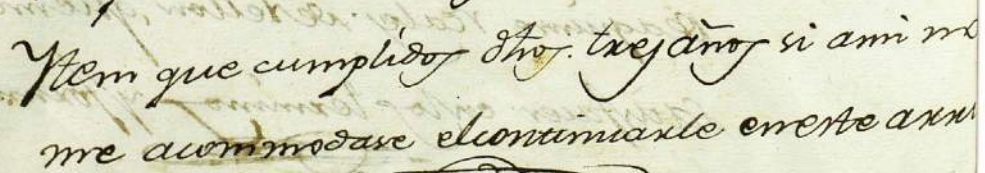 Ytem que cumplidos dhos. tres años si ami m
me acommodare elcontinuarle eneste arr